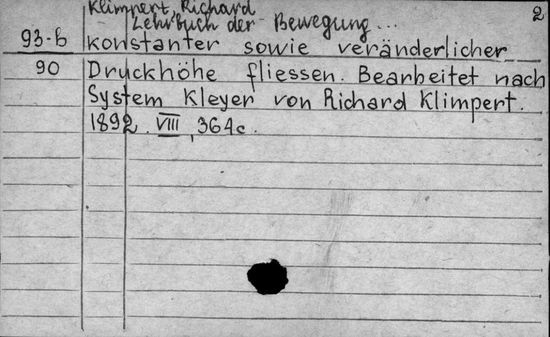 2
Klimpert, Richard
Lehrbuch der Bewegung...
93-b konstanter sowie veränderlicher
90 Druckhöhe fliessen. Bearbeitet nach
System Kleyer von Richard Klimpert.
1892. VIII, 364c.